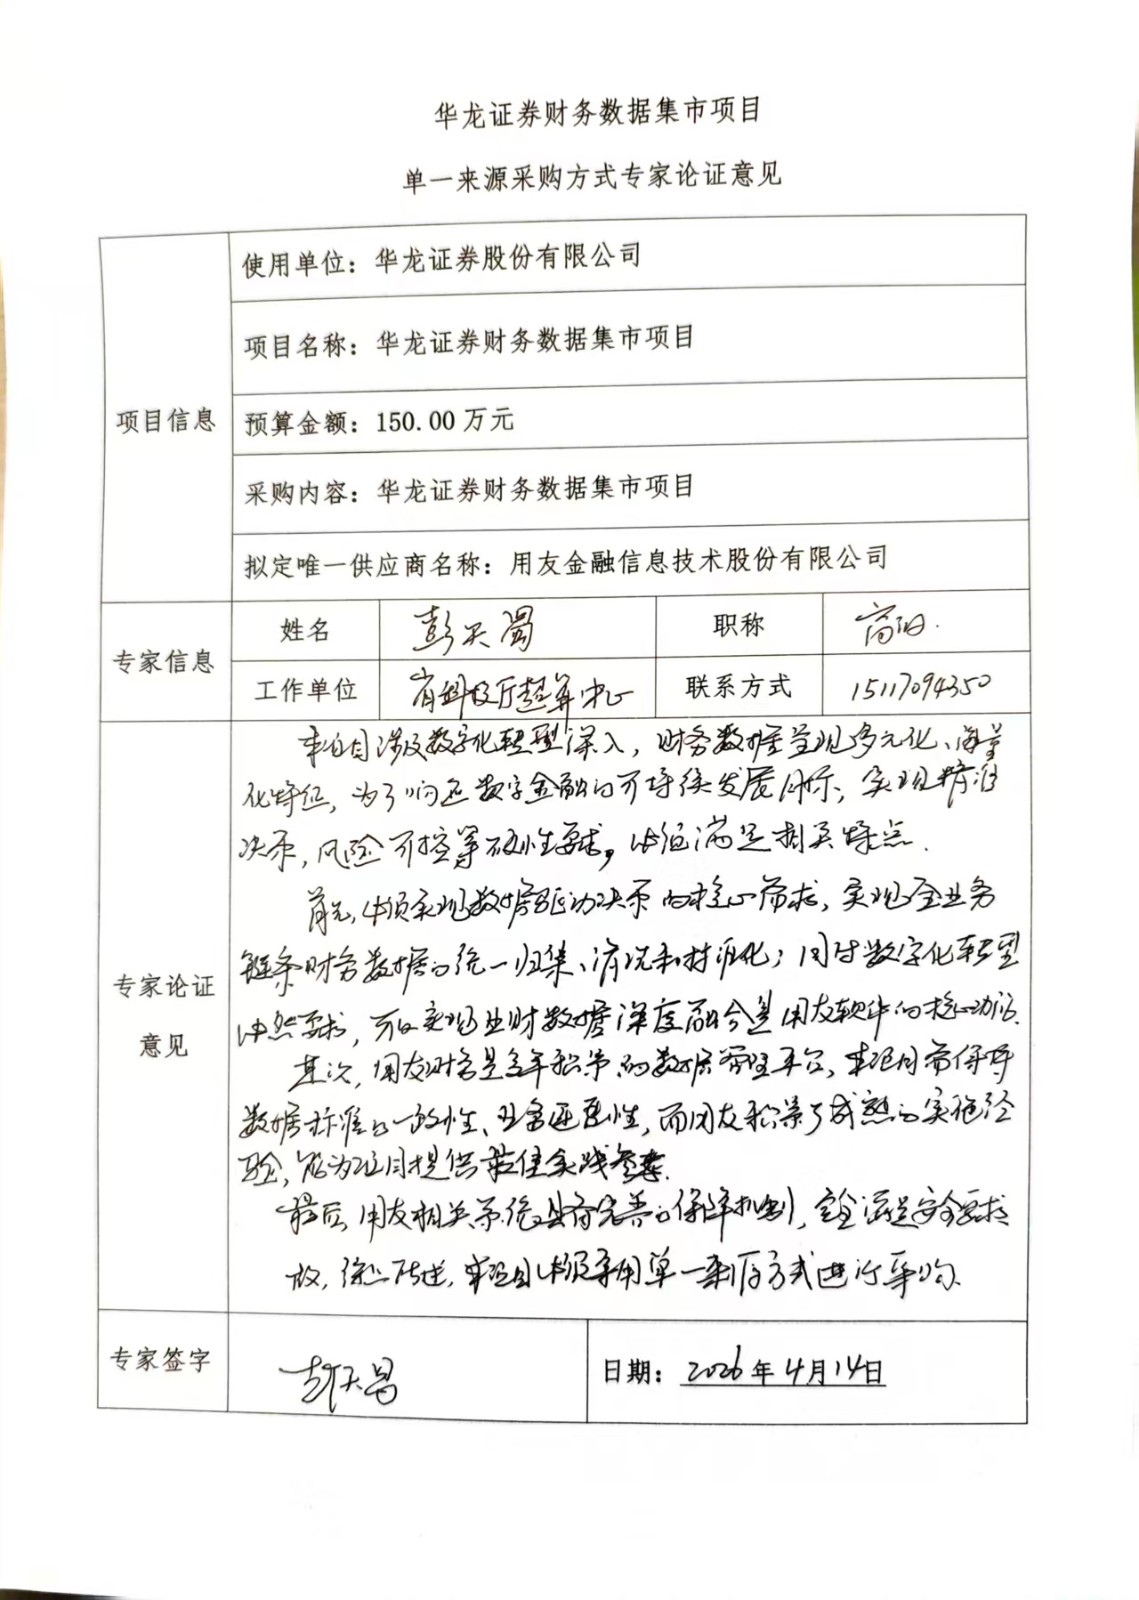 华龙证券财务数据集市项目
单一来源采购方式专家论证意见
项目信息
使用单位：华龙证券股份有限公司
项目名称：华龙证券财务数据集市项目
预算金额：150.00万元
采购内容：华龙证券财务数据集市项目
拟定唯一供应商名称：用友金融信息技术股份有限公司
专家信息
姓名
彭天
职称
高
工作单位
省科技厅超算中心
联系方式
15117094350
专家论证
意见
涉及数字化转型深入，财务数据呈现多元化、海量
化特征，为了响应数字金融的可持续发展目标，实现精准
决策，风险可控等性要求，满足相关特点.
首先，必须实现数据驱动决策的核心需求，实现全业务
链条财务数据的统一归集、清洗和标准化；同时数字化转型
必然要求，可以实现业财数据深度融合是用友软件的核心功能.
其次，用友财务是多年积累的数据管理平台，本项目需保持
数据标准的一致性、业务连惯性，而用友积累了成熟的实施经
验，能为项目提供最佳实践参考.
最后，用友相关系统具备完善的保障机制，完全满足安全要求
故，综上所述，本项目必须采用单一来源方式进行采购.
专家签字
彭天
日期：2026年4月14日